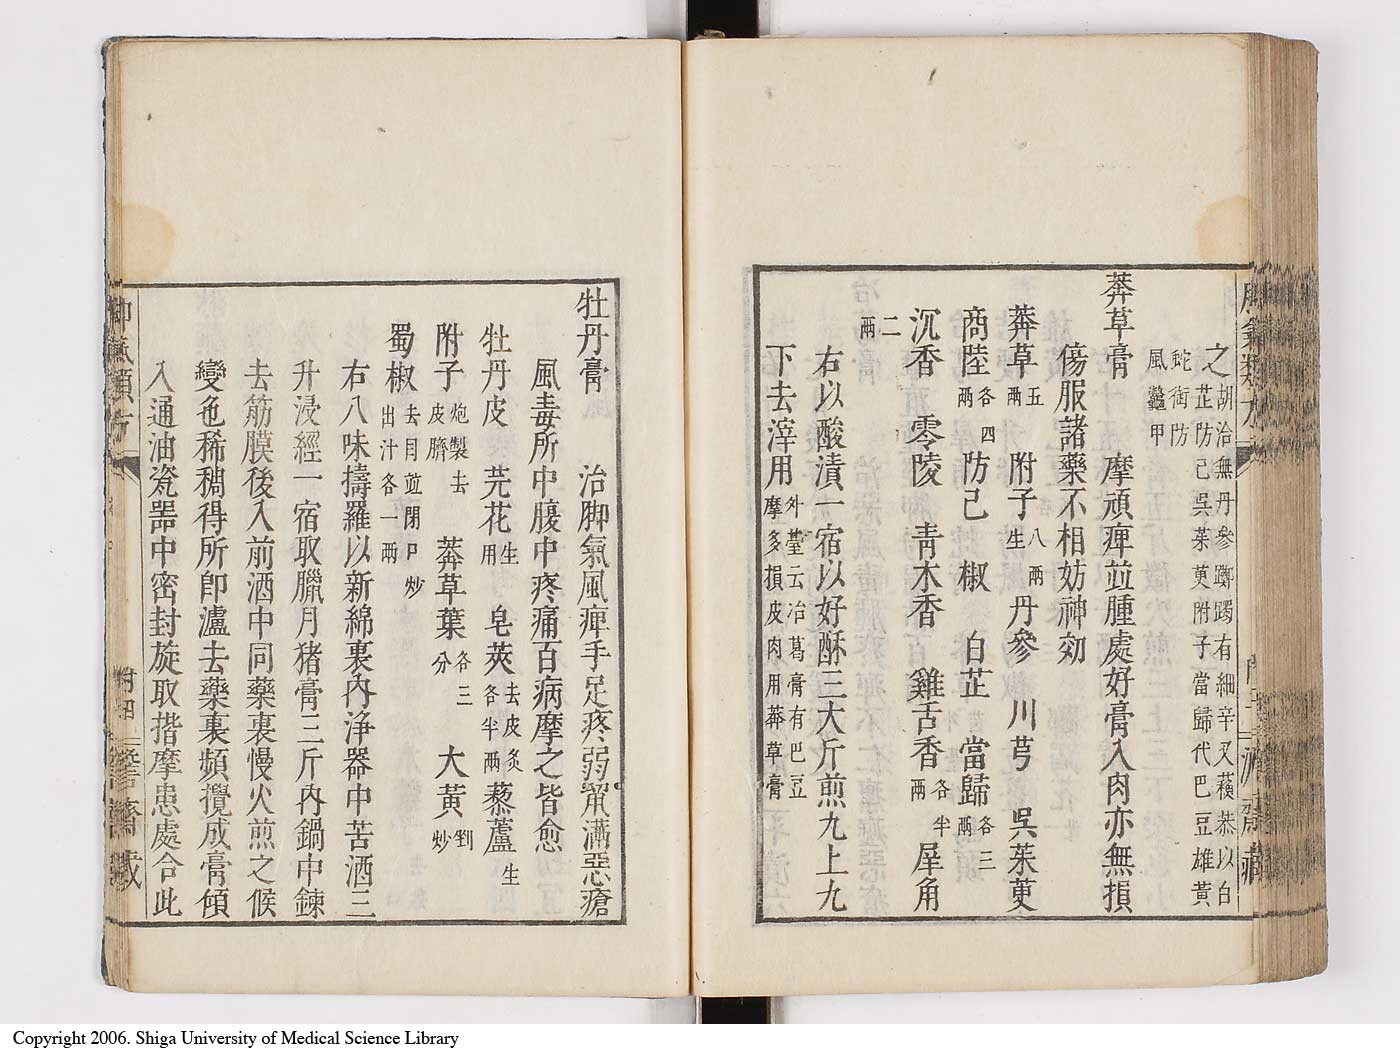 之胡洽無丹參躑躅有細辛又蘹𦳝以白
芷防己吳茱萸附子當歸代巴豆雄黃
蛇銜防
風鼈甲
莽草膏　摩頑痺竝腫處好膏入肉亦無損
傷服諸藥不相妨神効
莽草五兩　附子八兩生　丹參　川芎　吳茱萸
商陸各四兩　防己　椒　白芷　當歸各三兩
沉香　零陵　靑木香　雞舌香各半兩　犀角
二兩
右以酸漬一宿以好酥三大斤煎九上九
下去滓用外臺云冶葛膏有巴豆
摩多損皮肉用莽草膏
牡丹膏　治脚氣風痺手足疼弱鼠漏惡瘡
風毒所中腹中疼痛百病摩之皆愈
牡丹皮　芫花生用　皂莢去皮炙各半兩　藜蘆生
附子炮製去皮臍　莽草葉各三分　大黃剉炒
蜀椒去目竝閉口炒出汁各一兩
右八味擣羅以新綿裹內淨器中苦酒三
升浸經一宿取臘月猪膏三斤內鍋中鍊
去筋膜後入前酒中同藥裹慢火煎之候
變色稀稠得所卽濾去藥裹頻攪成膏傾
入通油瓷噐中密封旋取揩摩患處合此
脚氣類方
Copyright 2006. Shiga University of Medical Science Library